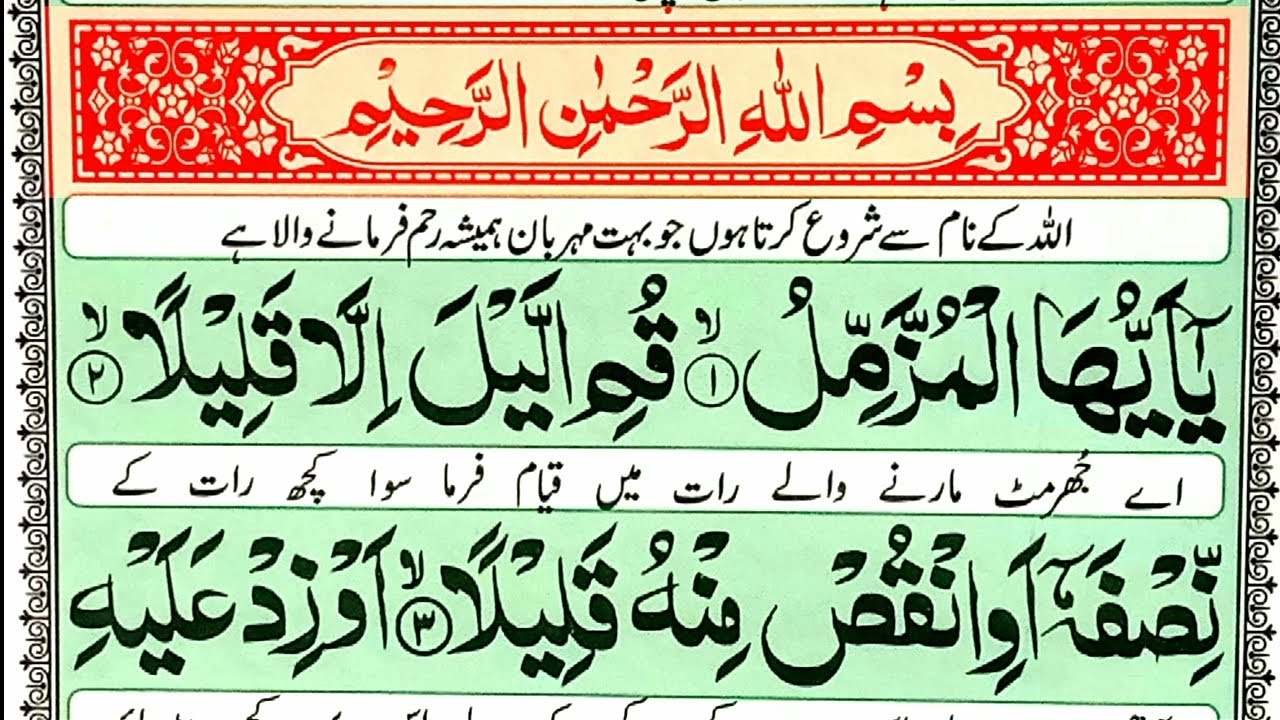 بِسْمِ اللهِ الرَّحْمٰنِ الرَّحِيْمِ
اللہ کے نام سے شروع کرتا ہوں جو بہت مہربان ہمیشہ رحم فرمانے والا ہے
يٰۤاَيُّهَا الْمُزَّمِّلُ ۙ﴿۱﴾ قُمِ الَّيْلَ اِلَّا قَلِيْلًا ۙ﴿۲﴾
اے جُھرمٹ مارنے والے رات میں قیام فرما سوا کچھ رات کے
نِّصْفَهٗۤ اَوِ انْقُصْ مِنْهُ قَلِيْلًا ۙ﴿۳﴾ اَوْ زِدْ عَلَيْهِ